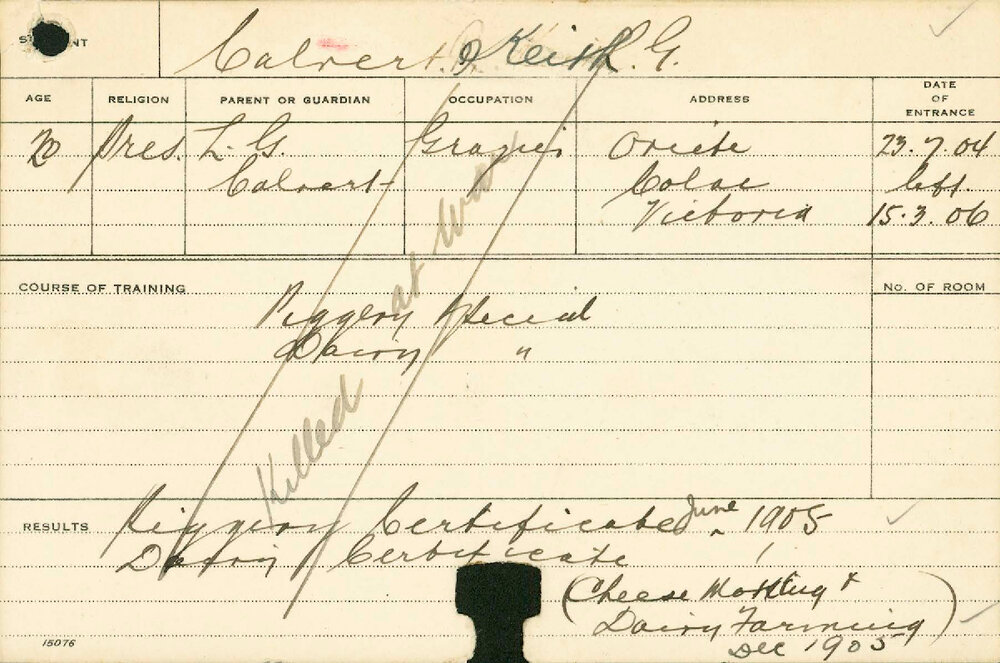 STUDENT
Calvert. Keith. G.
AGE RELIGION PARENT OR GUARDIAN OCCUPATION ADDRESS DATE OF ENTRANCE
20 Pres. L. G. Grazier 23.7.04
Calvert Colac left.
Victoria 15.3.06
Killed at War
COURSE OF TRAINING No. OF ROOM
Piggery Special
Dairy "
RESULTS Piggery Certificate June 1905
Dairy Certificate
(Cheese Making &
Dairy Farming)
Dec 1905
15076